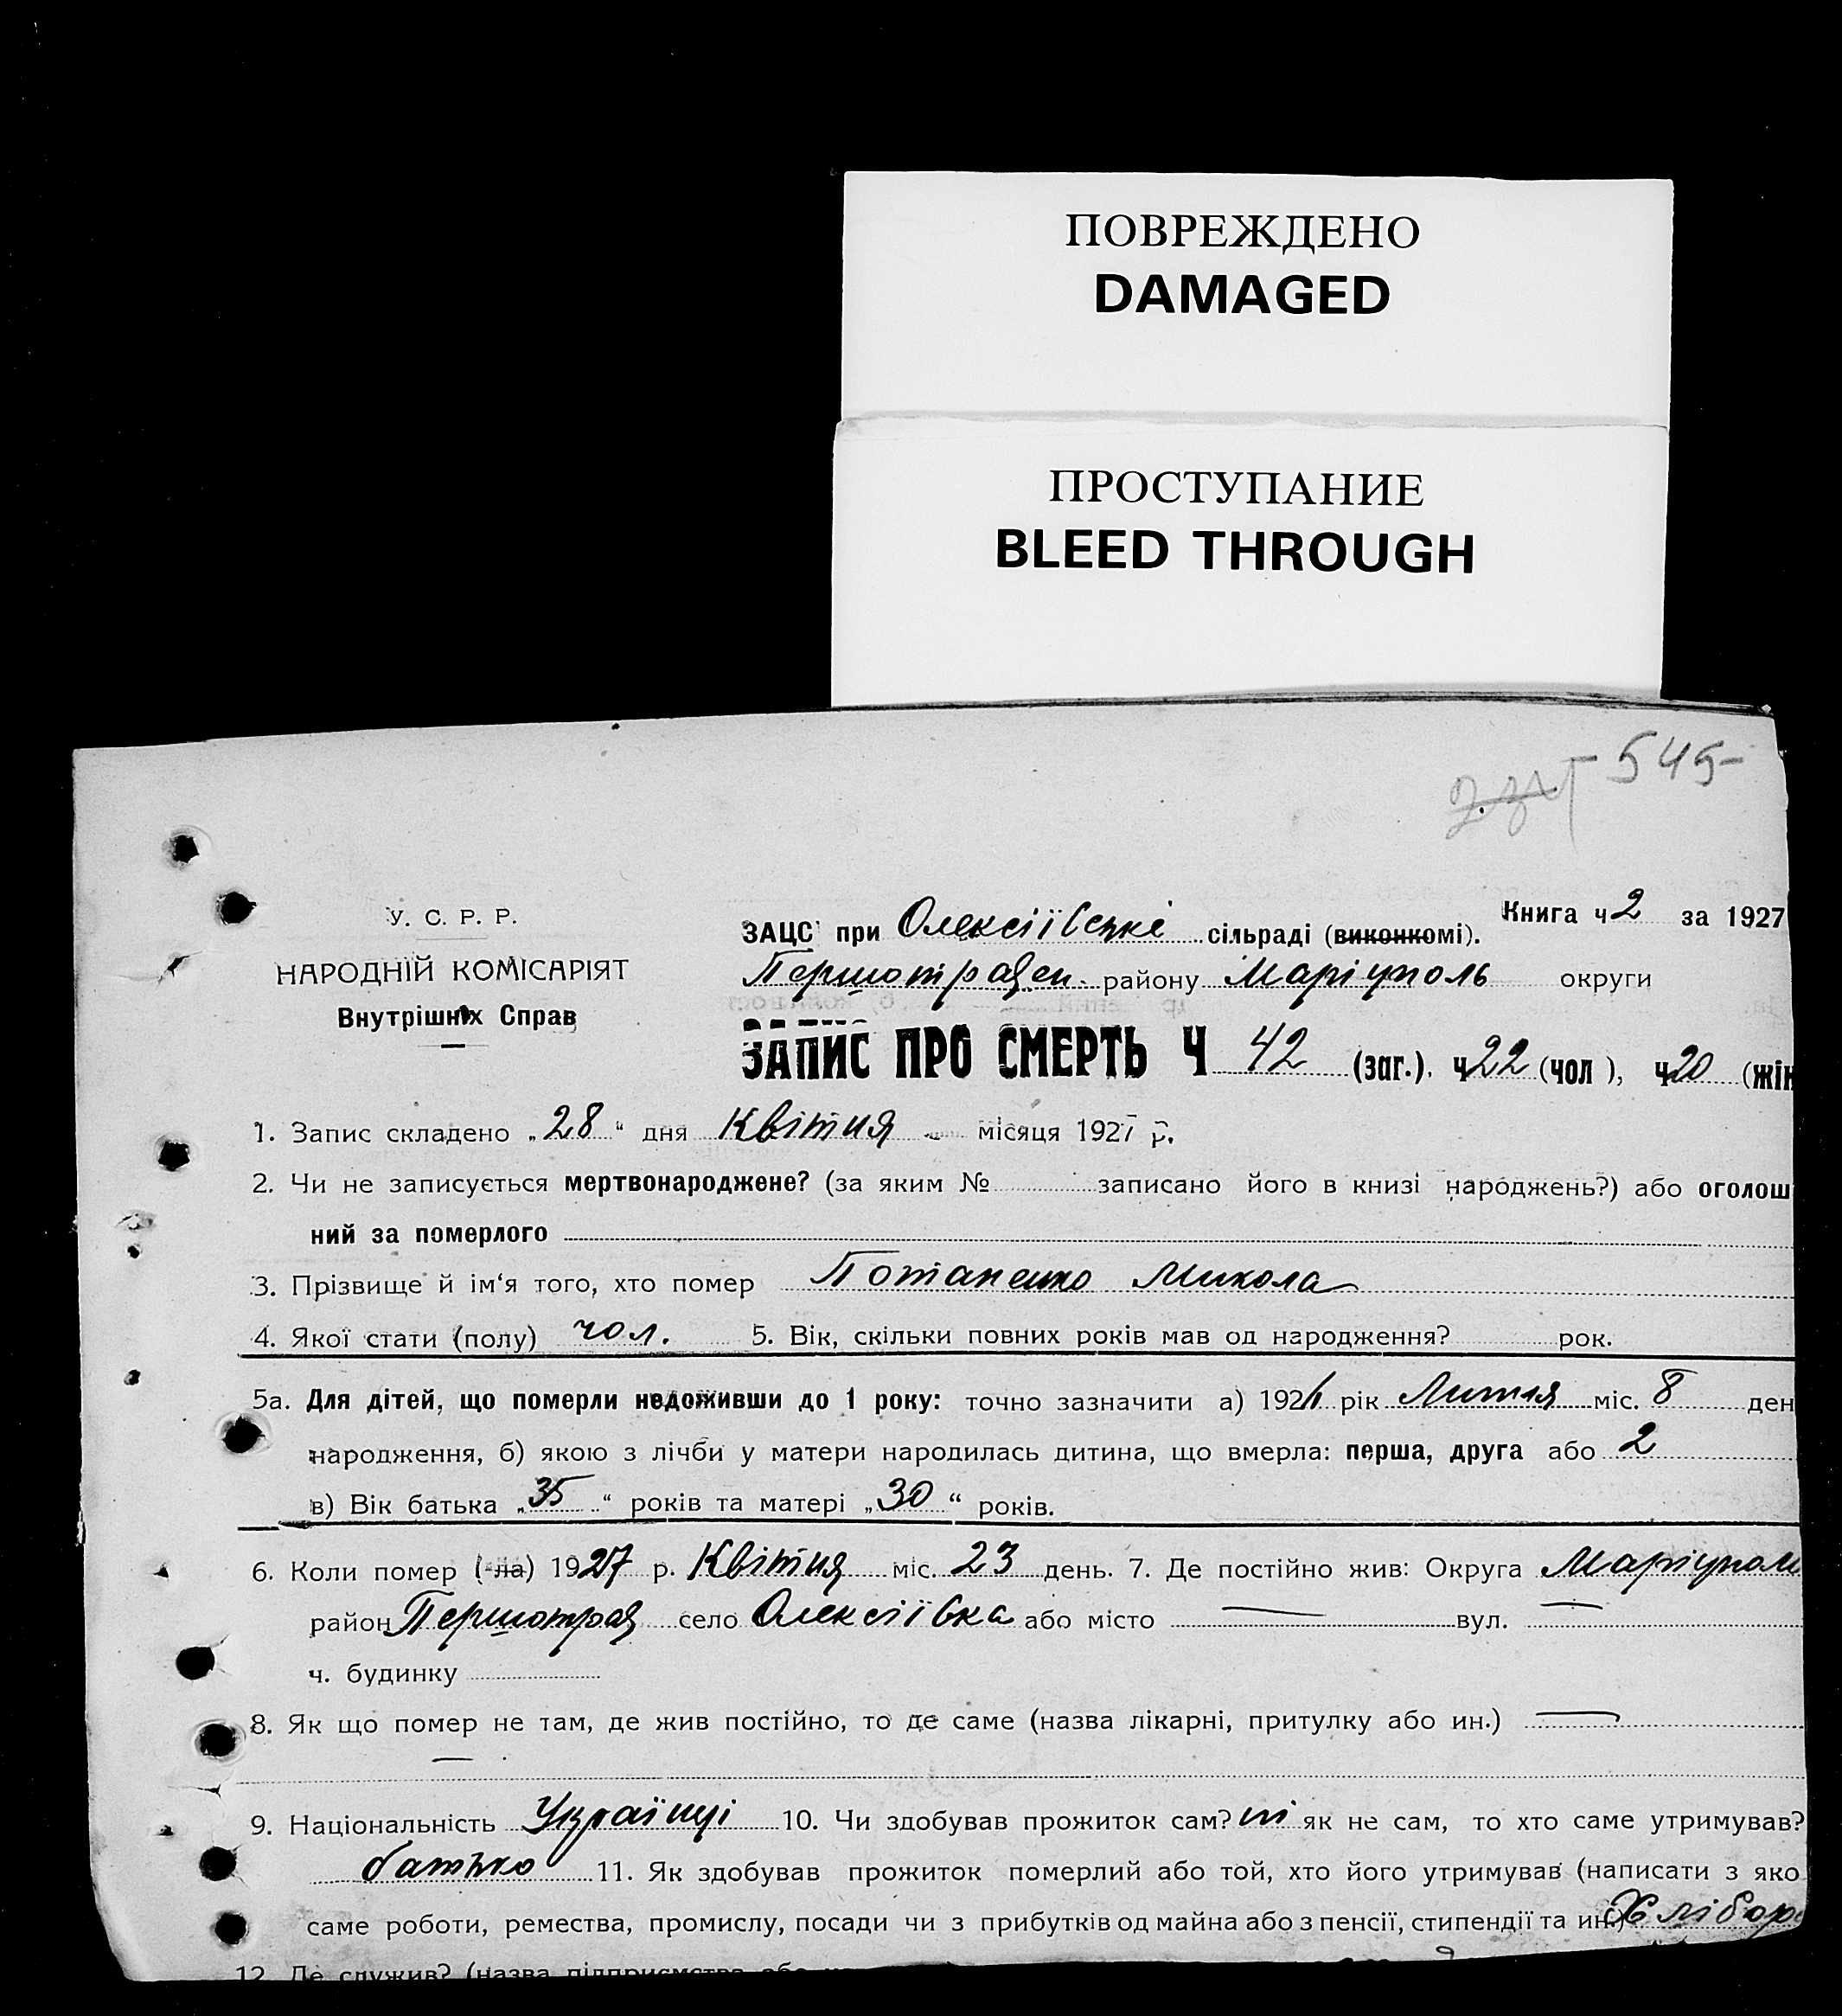 ПОВРЕЖДЕНО
DAMAGED
ПРОСТУПАНИЕ
BLEED THROUGH
545-
У. С. Р. Р.
НАРОДНІЙ КОМІСАРІЯТ
Внутрішніх Справ
Книга ч 2 за 1927
ЗАЦС при Олексіївські сільраді (виконкомі).
Першотравен. району Маріуполь округи
ЗАПИС ПРО СМЕРТЬ Ч 42 (заг.). ч 22 (чол ), ч 20 (жін
1. Запис складено „28“ дня Квітня місяця 1927 р.
2. Чи не записується мертвонароджене? (за яким № записано його в книзі народжень?) або оголош
ний за померлого
3. Прізвище й ім‘я того, хто помер Потапенко Микола
4. Якої стати (полу) чол. 5. Вік, скільки повних років мав од народження? рок.
5а. Для дітей, що померли недоживши до 1 року: точно зазначити а) 192 рік Лютня міс. 8 ден
народження, б) якою з лічби у матери народилась дитина, що вмерла: перша, друга або 2
в) Вік батька „35“ років та матері „30“ років.
6. Коли помер (-ла) 1927 р. Квітня міс. 23 день. 7. Де постійно жив: Округа Маріупол
район Першотрав село Олексіївка або місто — вул. —
ч. будинку
8. Як що помер не там, де жив постійно, то де саме (назва лікарні, притулку або ин.) —
—
9. Національність Українці 10. Чи здобував прожиток сам? ні як не сам, то хто саме утримував?
батько 11. Як здобував прожиток померлий або той, хто його утримував (написати з яко
саме роботи, ремества, промислу, посади чи з прибутків од майна або з пенсії, стипендії та ин.) Хлібор
12. Де служив? (назва підприємства або